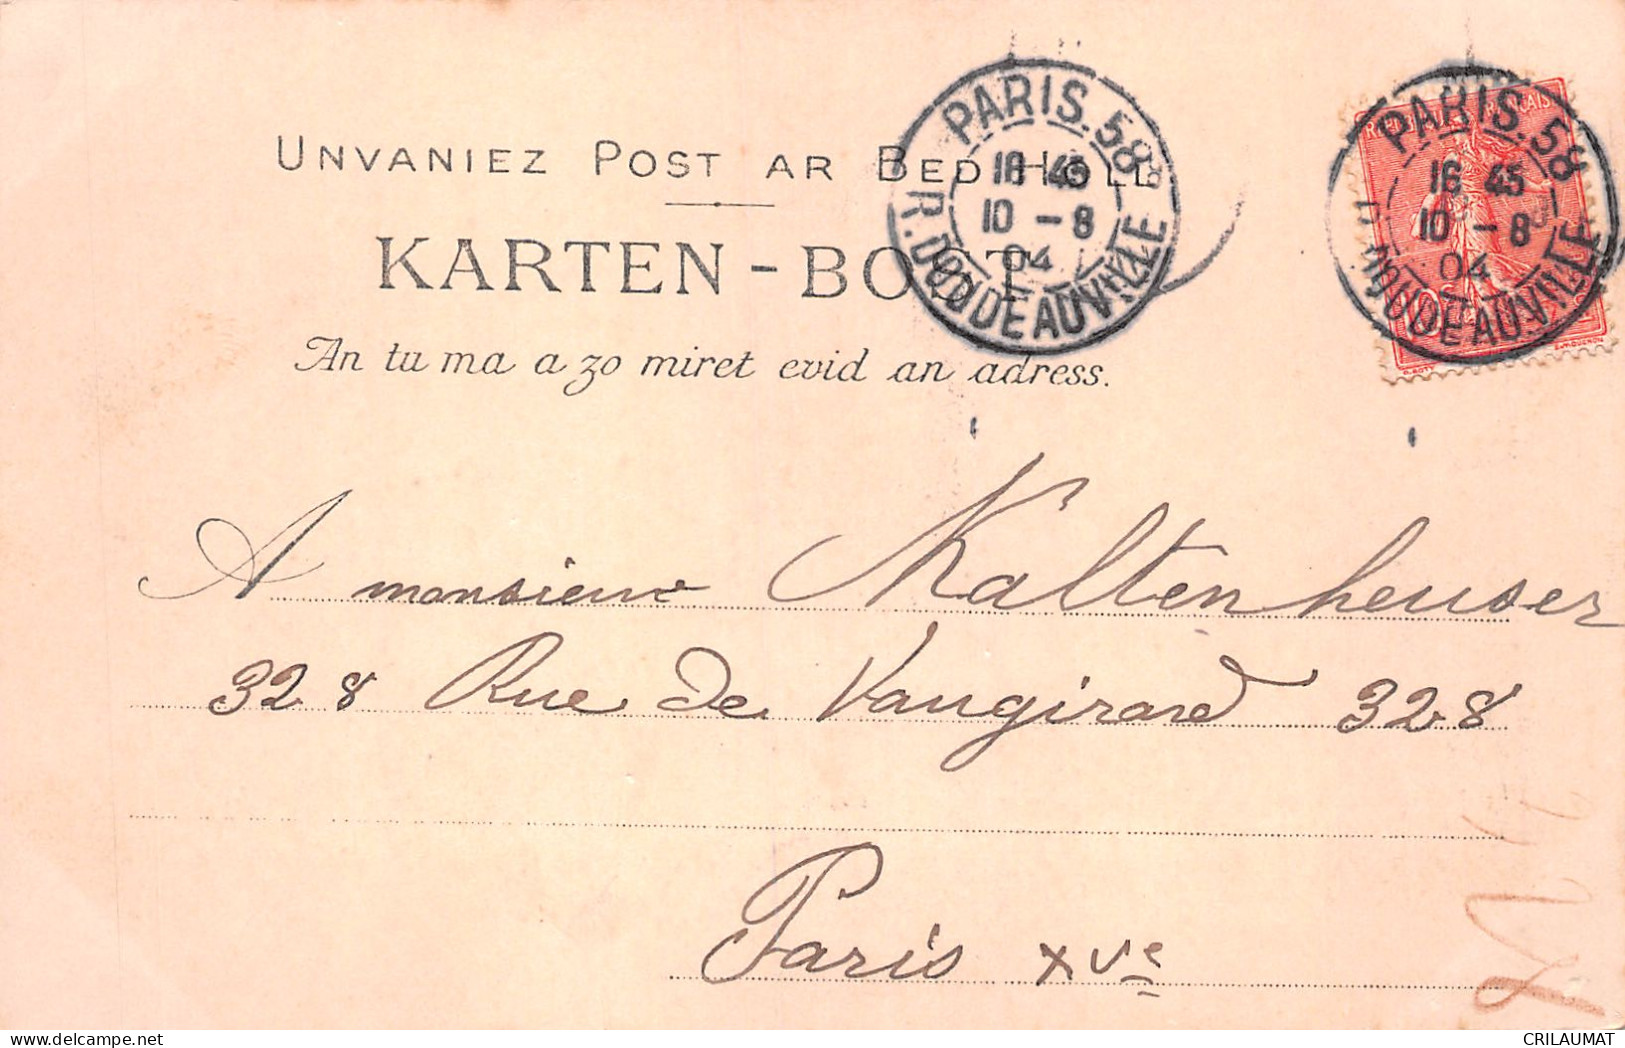 UNVANIEZ POST AR BED HOLL
KARTEN-BOST
An tu ma a zo miret evid an adress.
PARIS.58
16 45
10 - 8
04
R. DOUDEAUVILLE
PARIS.58
16 45
10 - 8
04
R. DOUDEAUVILLE
A monsieur Kaltenheuser
328 Rue de Vaugirard 328
Paris XVe
CRILAUMAT